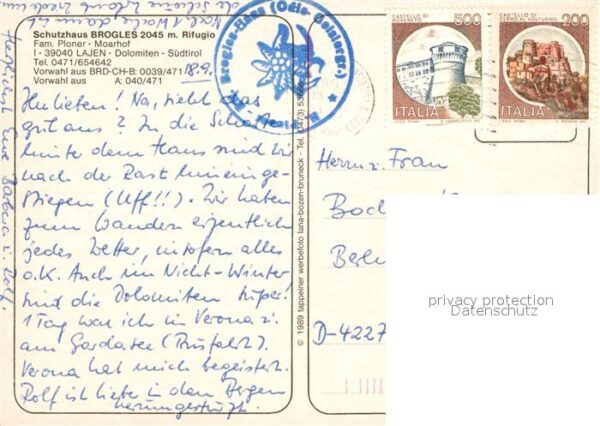 Schutzhaus BROGLES 2045 m. Rifugio
Fam. Ploner - Moarhof
I - 39040 LAJEN - Dolomiten - Südtirol
Tel. 0471/654642
Vorwahl aus BRD-CH-B: 0039/471
Vorwahl aus A: 040/471
18.9.
Ihr Lieben! Na, sieht das
gut aus? In die Scharte
hinter dem Haus sind wir
nach der Rast hineinge-
stiegen (Uff!!). Wir haben
zum Wandern eigentlich
jedes Wetter, insofern alles
o.K. Auch im Nicht-Winter
sind die Dolomiten super!
1 Tag war ich in Verona u.
am Gardasee
Verona hat mich begeistert.
Rolf ist lieber in den Bergen
herumgestürzt.
Herzlichst Eure Barbara u. Rolf.
© 1989 tappeiner werbefoto lana-bozen-bruneck - Tel. (0473)
Brogles-Hütte (Odle-Geislergr.)
CASTELLO DI
ROVERETO
500
ITALIA
CASTELLO DI
CERRO AL VOLTURNO
200
ITALIA
Herrn u. Frau
D-4227
privacy protection
Datenschutz